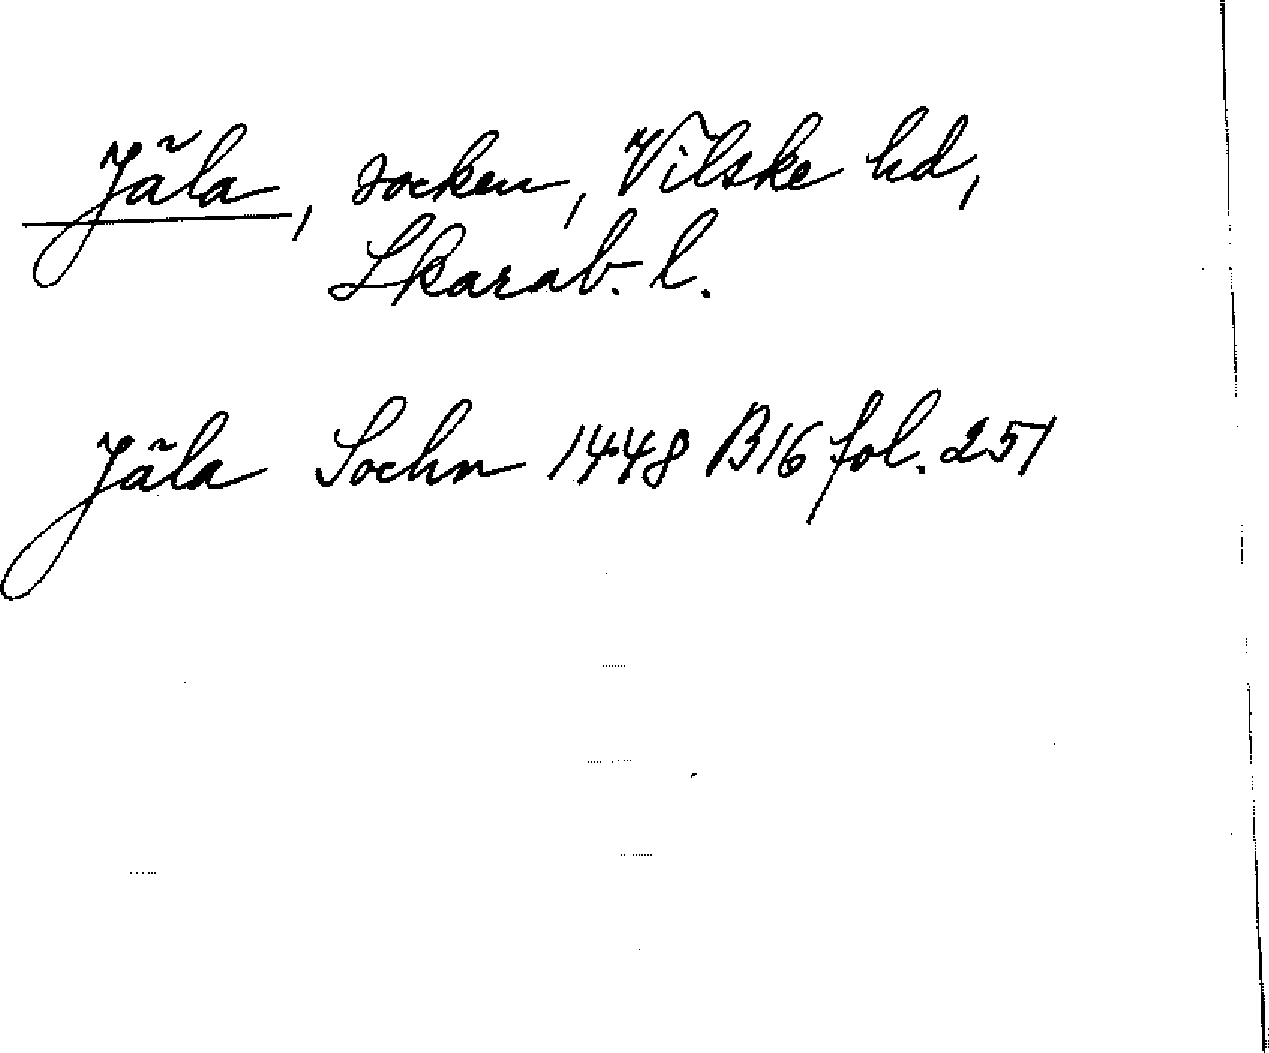 Jäla, socken, Vilske hd,
Skarab. l.
Jäla Sochn 1448 B16 fol. 251